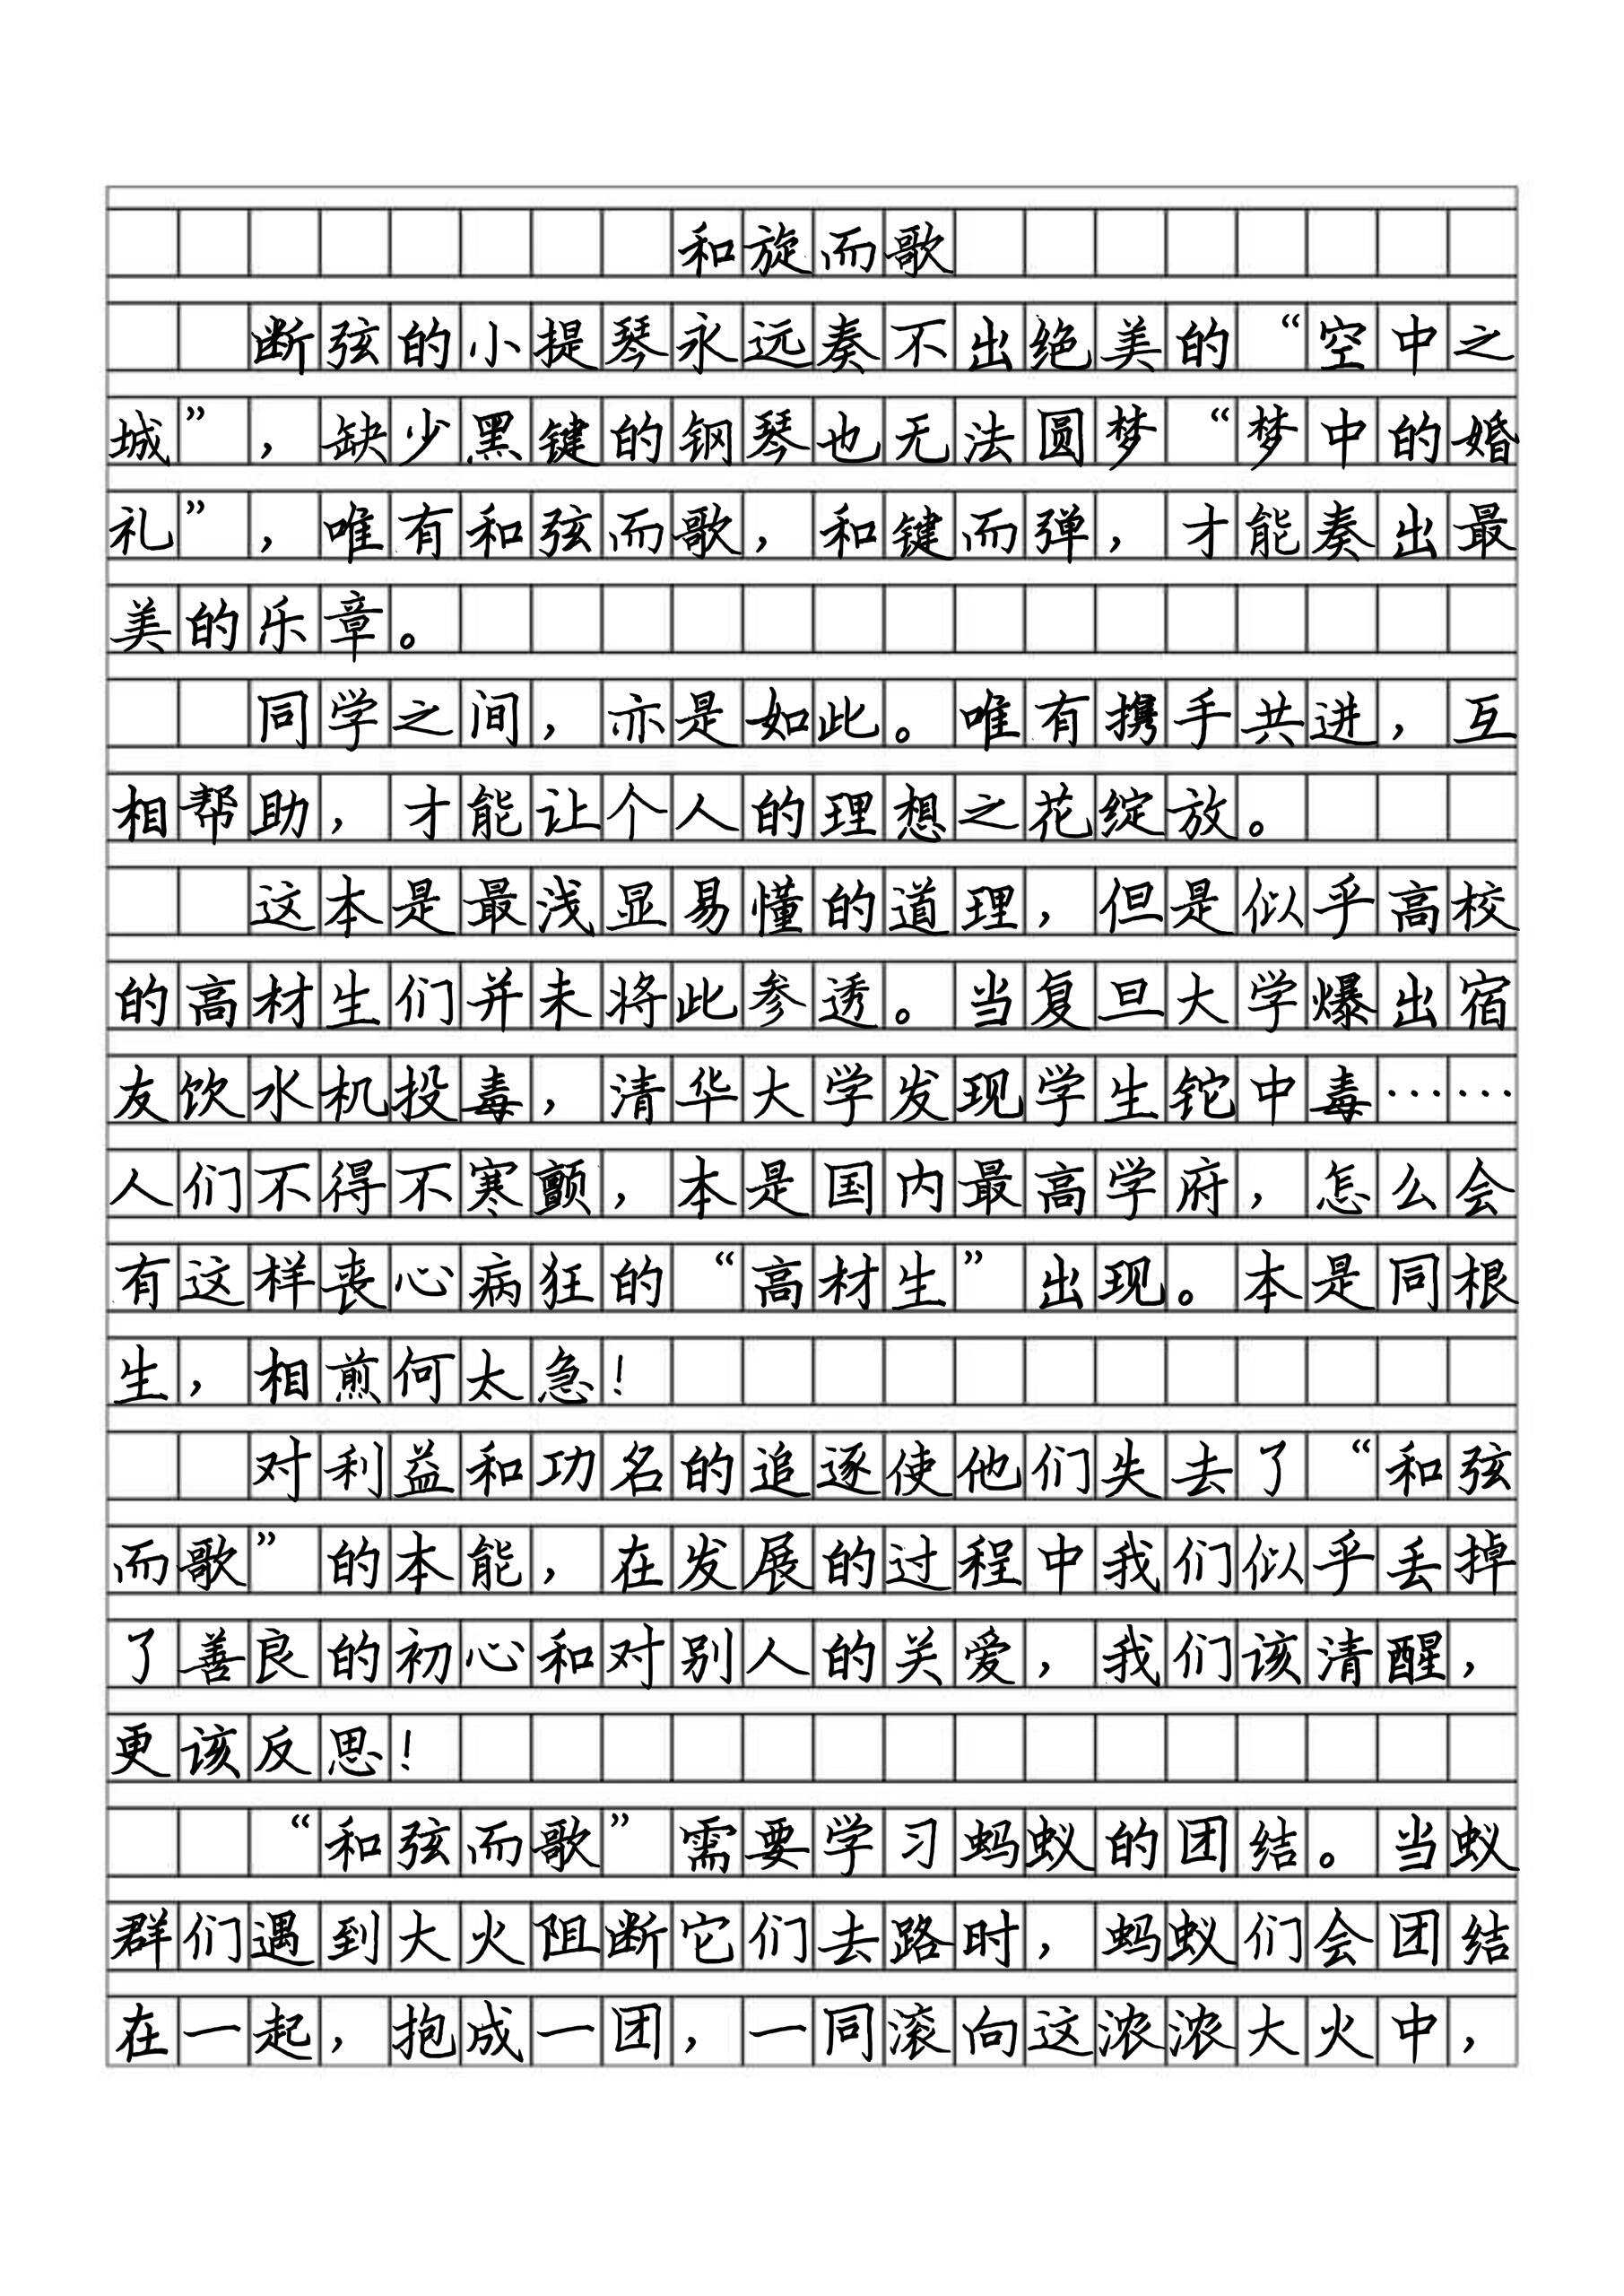 和旋而歌
断弦的小提琴永远奏不出绝美的“空中之
城”，缺少黑键的钢琴也无法圆梦“梦中的婚
礼”，唯有和弦而歌，和键而弹，才能奏出最
美的乐章。
同学之间，亦是如此。唯有携手共进，互
相帮助，才能让个人的理想之花绽放。
这本是最浅显易懂的道理，但是似乎高校
的高材生们并未将此参透。当复旦大学爆出宿
友饮水机投毒，清华大学发现学生铊中毒……
人们不得不寒颤，本是国内最高学府，怎么会
有这样丧心病狂的“高材生”出现。本是同根
生，相煎何太急！
对利益和功名的追逐使他们失去了“和弦
而歌”的本能，在发展的过程中我们似乎丢掉
了善良的初心和对别人的关爱，我们该清醒，
更该反思！
“和弦而歌”需要学习蚂蚁的团结。当蚁
群们遇到大火阻断它们去路时，蚂蚁们会团结
在一起，抱成一团，一同滚向这浓浓大火中，